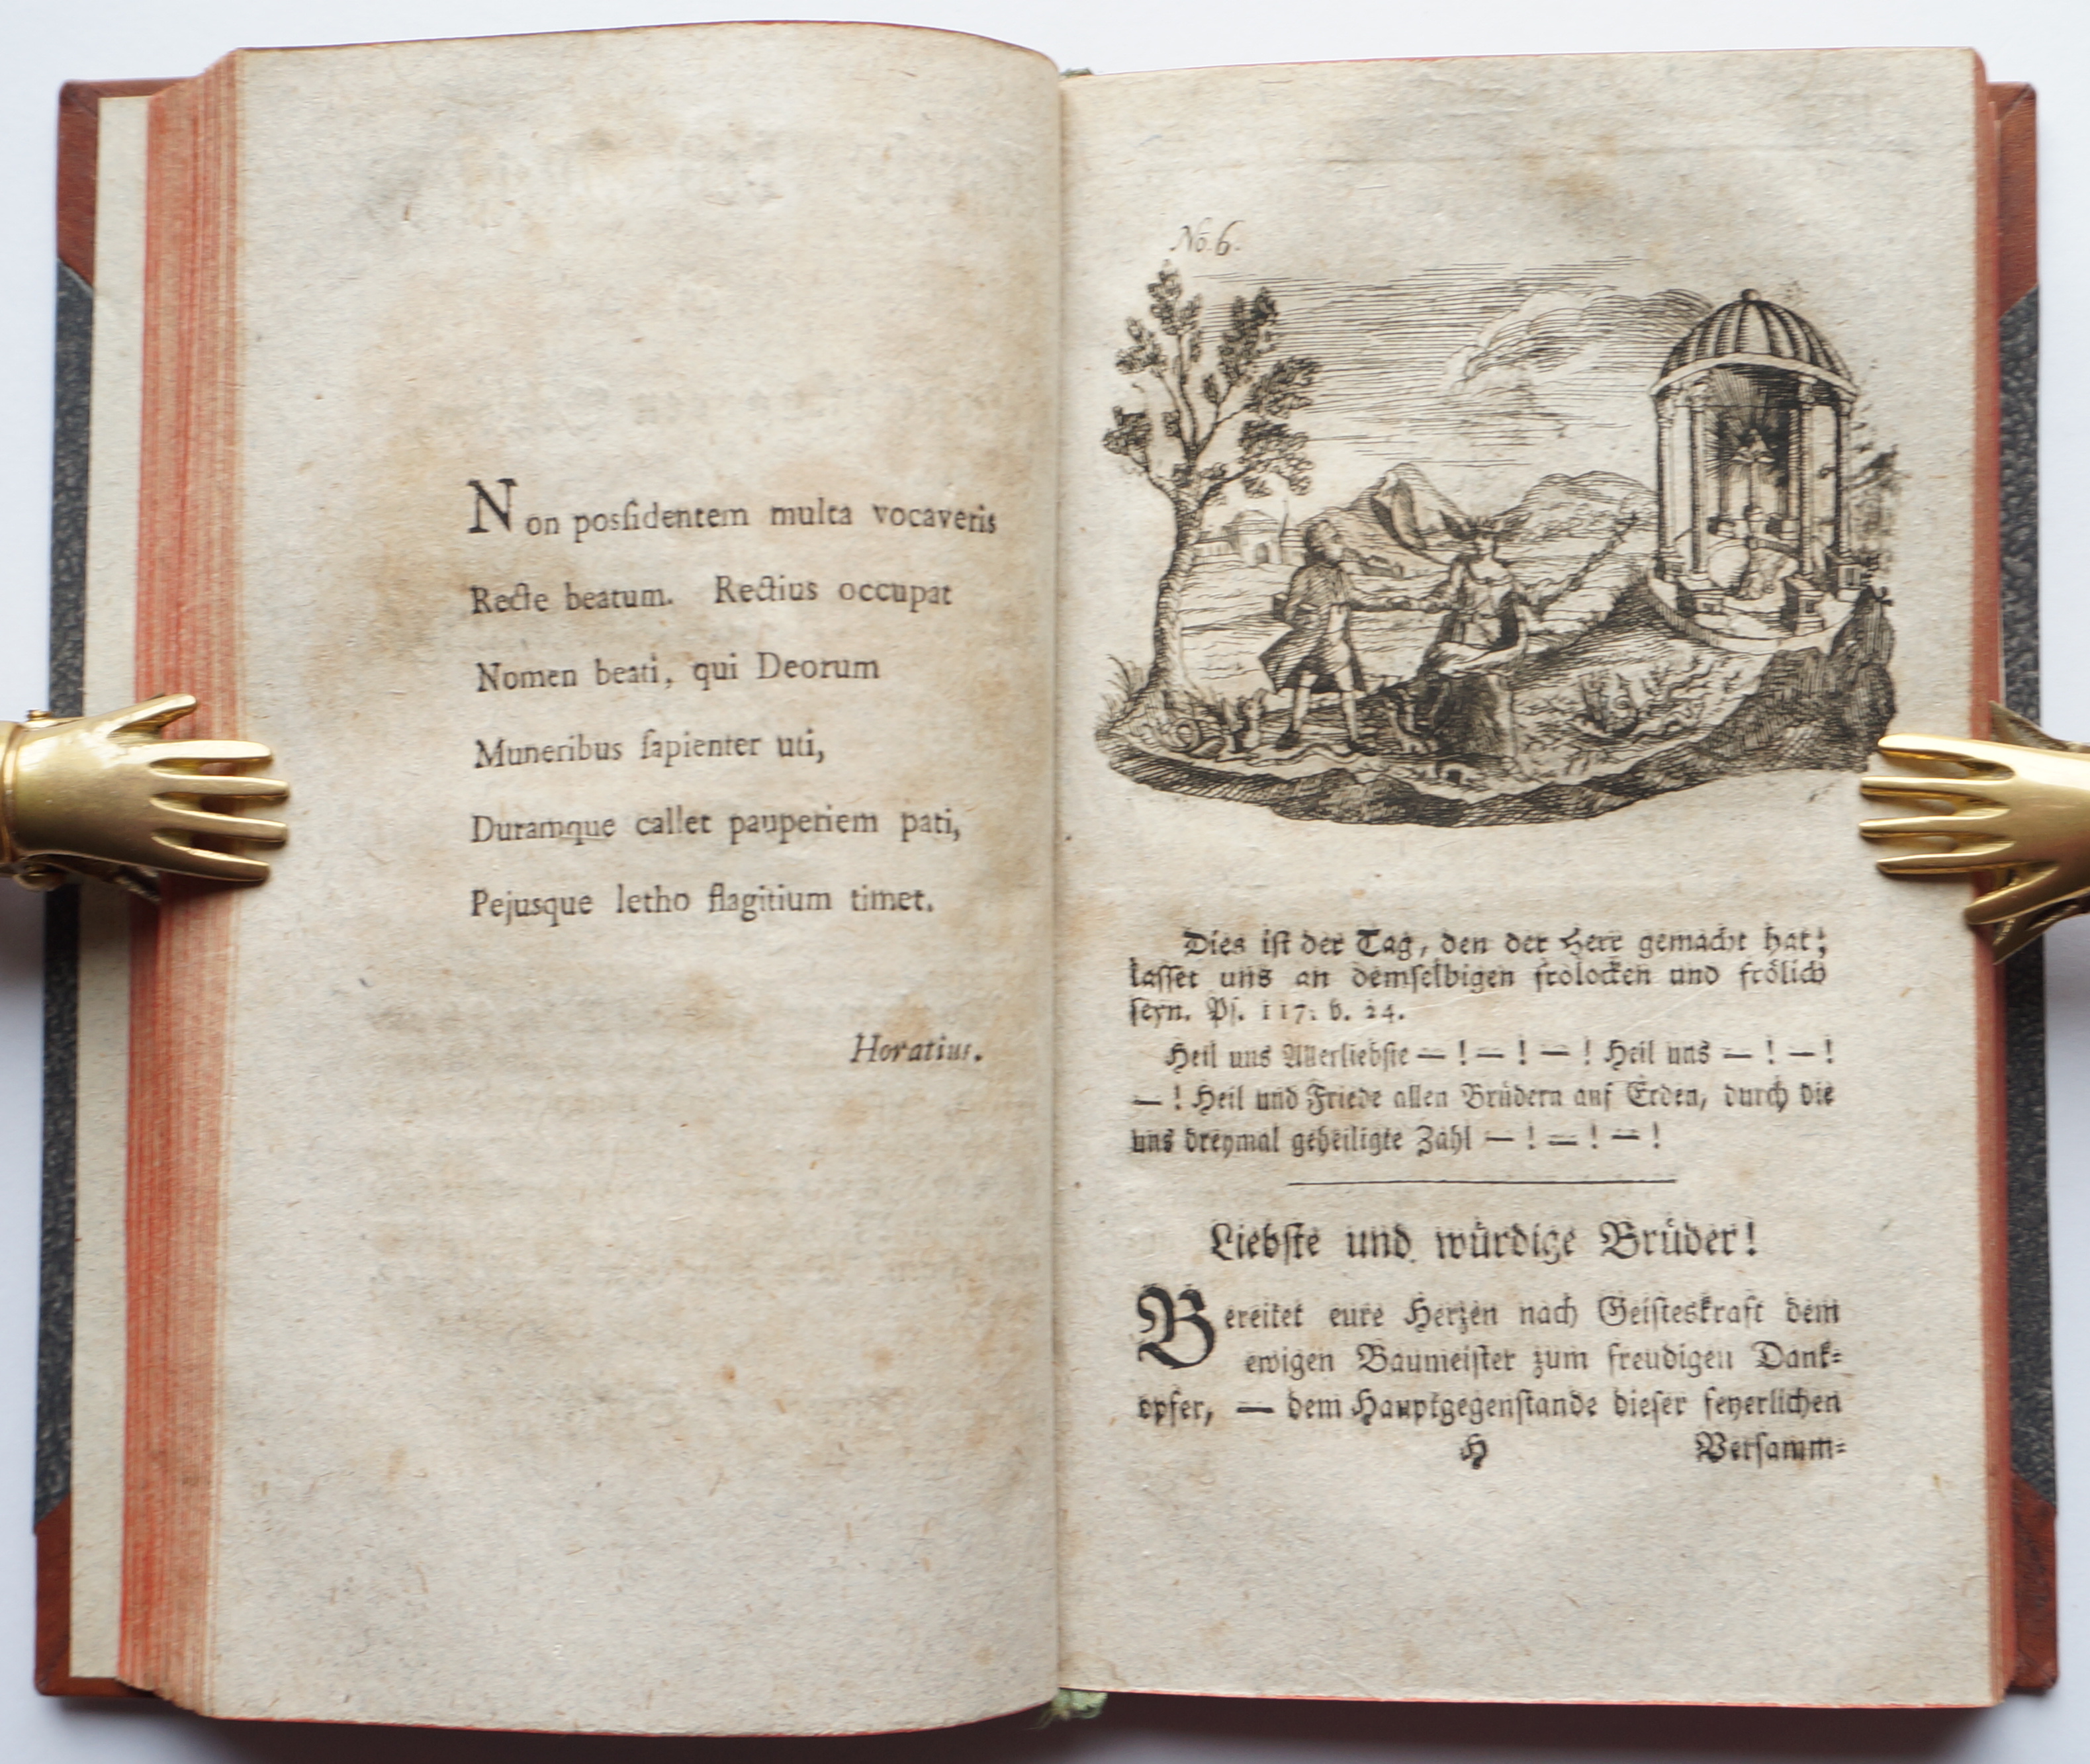 Non posſidentem multa vocaveris
Recte beatum. Rectius occupat
Nomen beati, qui Deorum
Muneribus ſapienter uti,
Duramque callet pauperiem pati,
Pejusque letho flagitium timet.
Horatius.
No. 6.
Dies iſt der Tag, den der Herr gemacht hat;
laſſet uns an demſelbigen frolocken und frölich
ſeyn. Pſ. 117. v. 24.
Heil uns Allerliebſte — ! — ! — ! Heil uns — ! — !
— ! Heil und Friede allen Brüdern auf Erden, durch die
uns dreymal geheiligte Zahl — ! — ! — !
Liebſte und würdige Brüder!
Bereitet eure Herzen nach Geiſteskraft dem
ewigen Baumeiſter zum freudigen Dank⸗
opfer, — dem Hauptgegenſtande dieſer feyerlichen
H Verſamm⸗